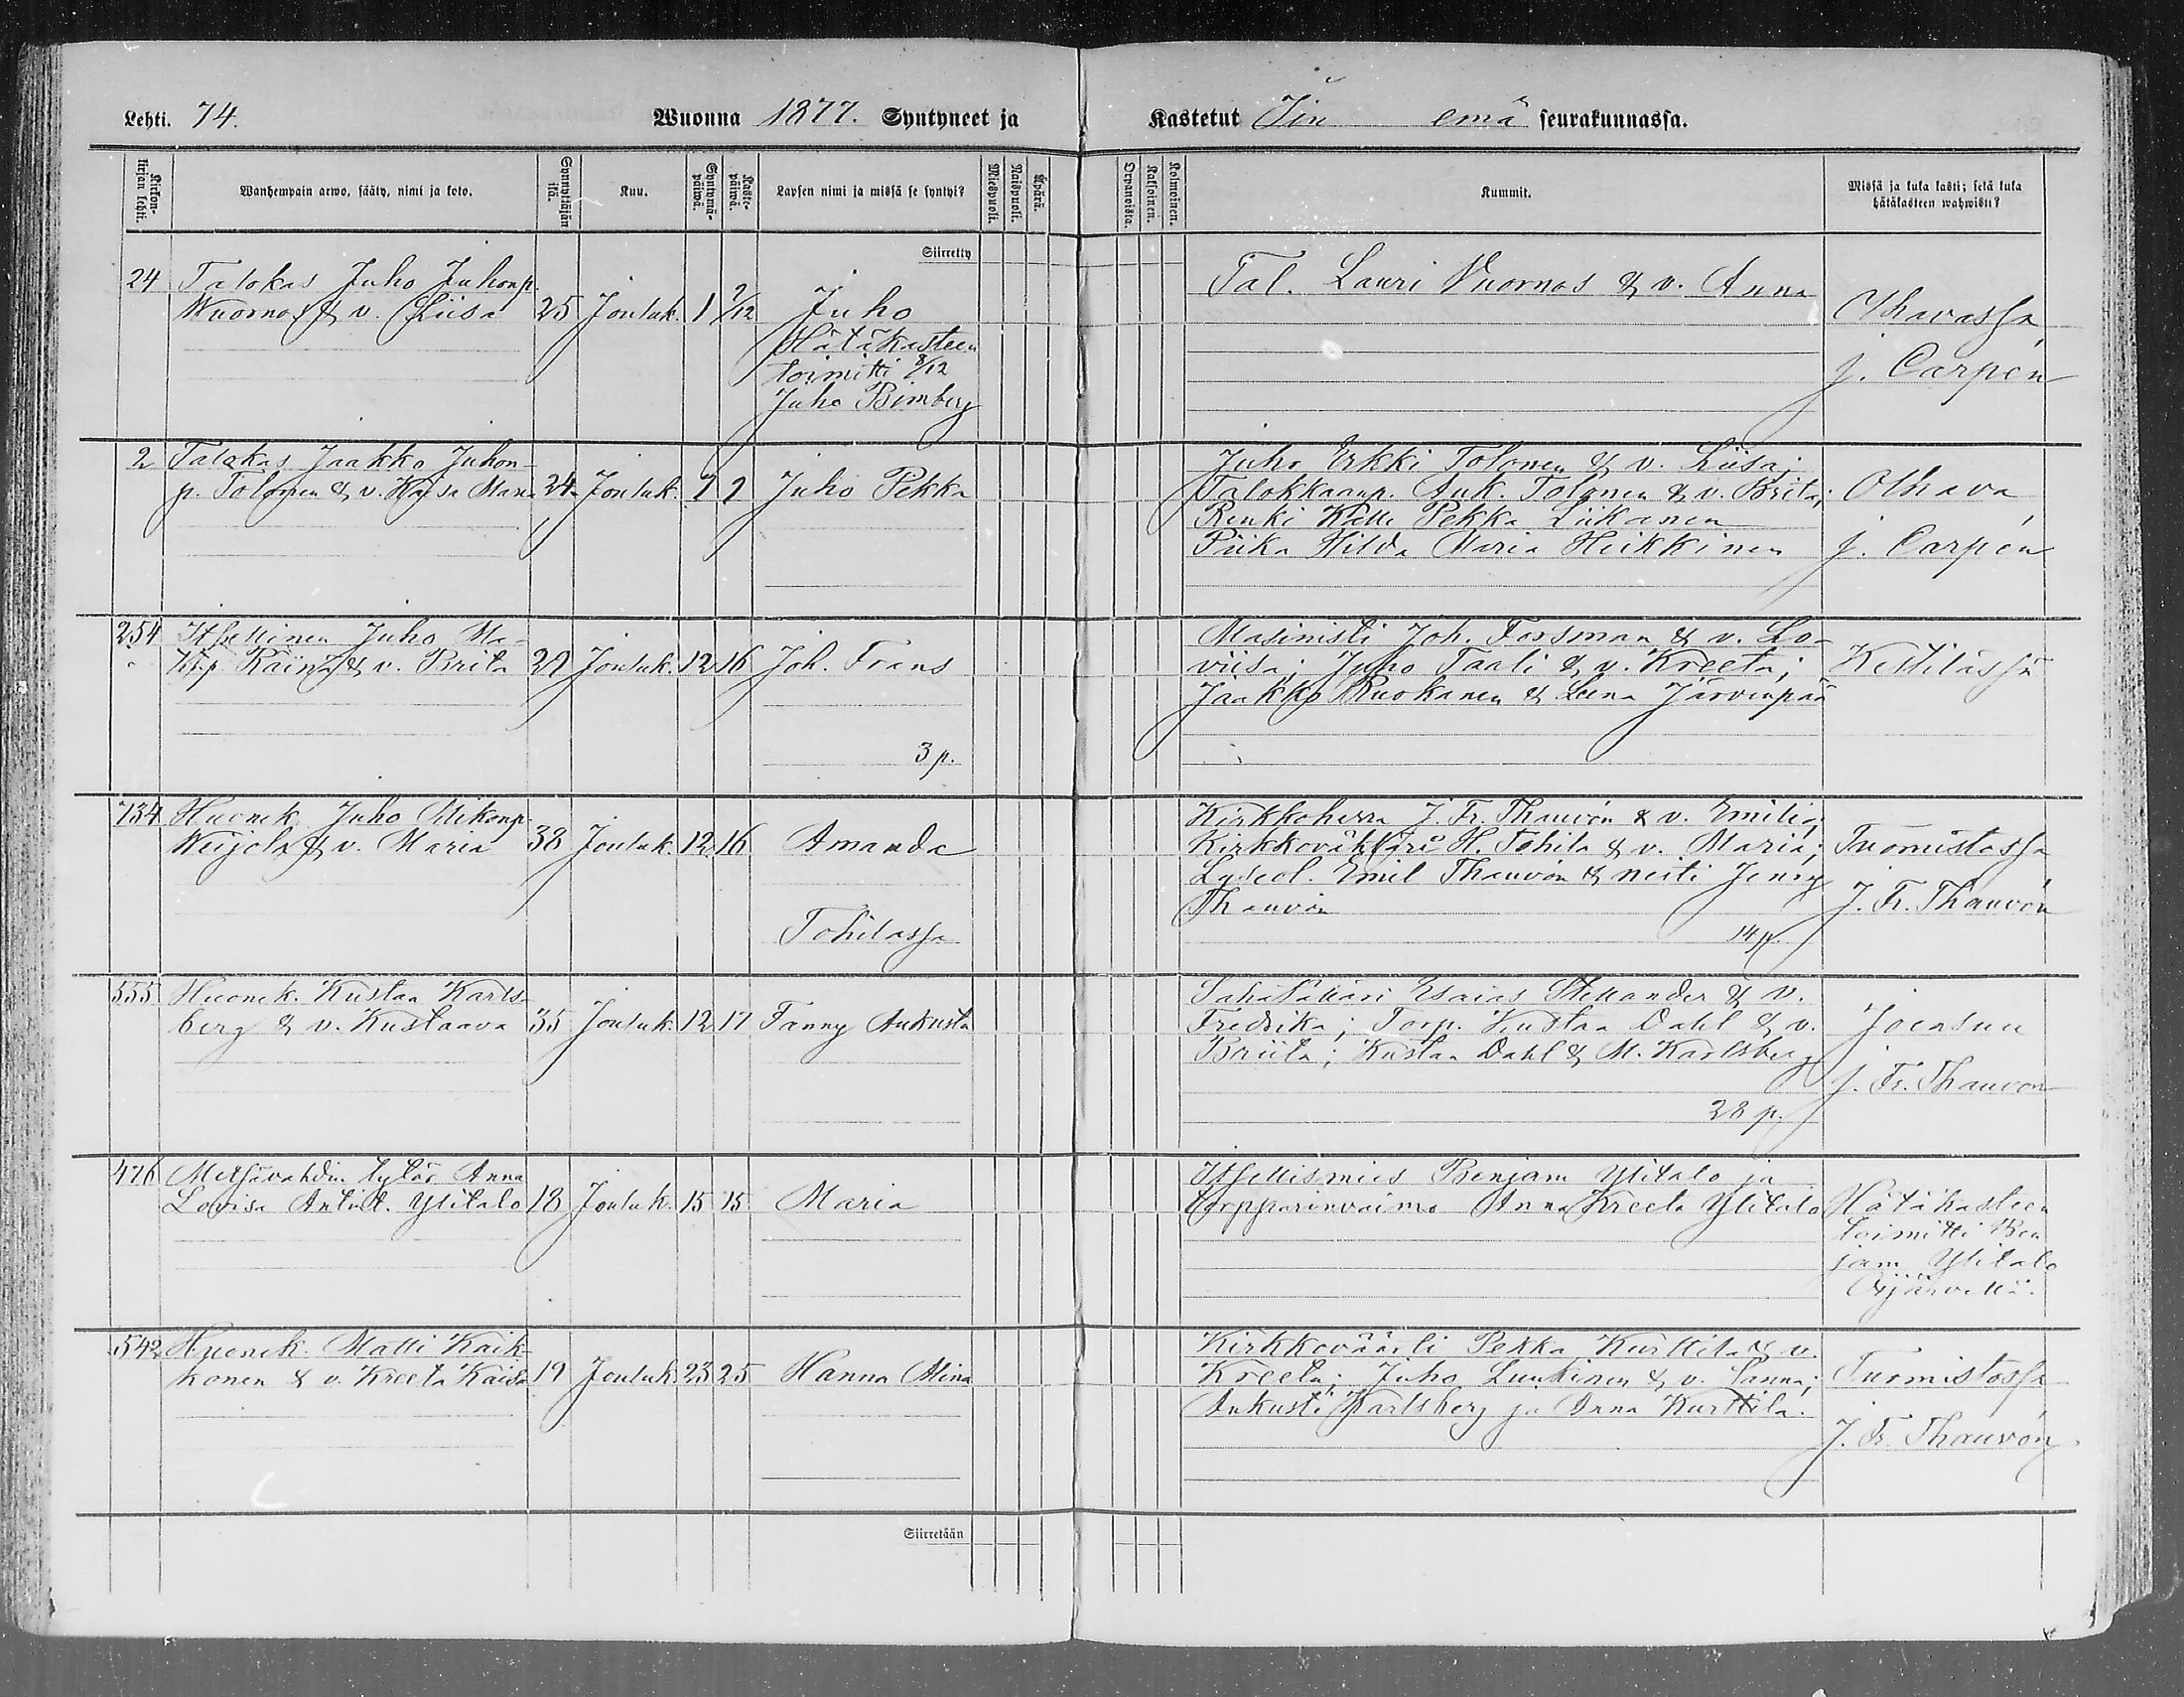 Lehti. 74.
Wuonna 1877. Syntyneet ja
Kastetut Iin emä seurakunnassa.
Kirkon-kirjan lehti.
Wanhempain arwo, sääty, nimi ja koto.
Synnyttäjän ikä.
Kuu.
Syntymä-päivä.
Kaste-päivä.
Lapsen nimi ja missä se syntyi?
Miespuoli.
Naispuoli.
Äpärä.
Orpanoista.
Kaksoinen.
Kolmoinen.
Kummit.
Missä ja kuka kasti; sekä kuka
hätäkasteen wahwisti?
Siirretty
24 Talokas Juho Juhonp.
Wuornos & v. Liisa 25 Jouluk. 1 2/12 Juho
Hätäkasteen
toimitti 8/12
Juho Bimberg
Tal. Lauri Vuornos & v. Anna
Olhavassa
J. Carpén
2 Talokas Jaakko Juhon-
p. Tolonen & v. Kaisa Maria 24 Jouluk. 2 2 Juho Pekka
Juho Erkki Tolonen & v. Liisa;
Talokkaanp. Auk. Tolonen & v. Brita;
Renki Kalle Pekka Liikanen
Piika Hilda Maria Heikkinen
Olhava
J. Carpén
254 Itsellinen Juho Ma-
tinp. Kainz & v. Brita 29 Jouluk. 12 16 Joh. Frans
3 p.
Masinisti Joh. Forsman & v. Lo-
viisa; Juho Taali & v. Kreeta;
Jaakko Ruokanen & Leena Järvenpää
Kestilässä
734 Huonek. Juho Mikonp.
Weijola & v. Maria 38 Jouluk. 12 16 Amanda
Tohilassa
Kirkkoherra J. Fr. Thauvón & v. Emilia;
Kirkkoväktäri H. Tohila & v. Maria;
Lyseol. Emil Thauvón & neiti Jenny
Thauvón
14 p.
Tuomistossa
J. Fr. Thauvón
555 Huonek. Kustaa Karls-
berg & v. Kustaava 35 Jouluk. 12 17 Fanny Aukusta
Sahasällari Esaias Stellander & v.
Fredrika; Torp. Kustaa Dahl & v.
Briita; Kustaa Dahl & M. Karlsberg
28 p.
Joensuu
J. Fr. Thauvón
476 Metsävahdin tytär Anna
Lovisa Antint. Ylitalo 18 Jouluk. 15 15 Maria
Itsellismies Benjam Ylitalo ja
torpparinvaimo Anna Kreeta Ylitalo
Hätäkasteen
toimitti Ben
jam Ylitalo
Oijärvellä.
542 Huonek. Matti Kaik-
konen & v. Kreeta Kaisa 19 Jouluk. 23 25 Hanna Miina
Kirkkoväärti Pekka Kurttila & v.
Kreeta; Juho Luukinen & v. Sanna;
Aukusti Karlsberg ja Anna Kurttila.
Tuomistossa
J. Fr. Thauvón
Siirretään